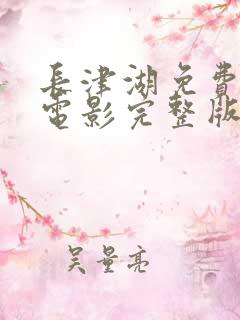 長津湖免費
電影完整版
吴量亮